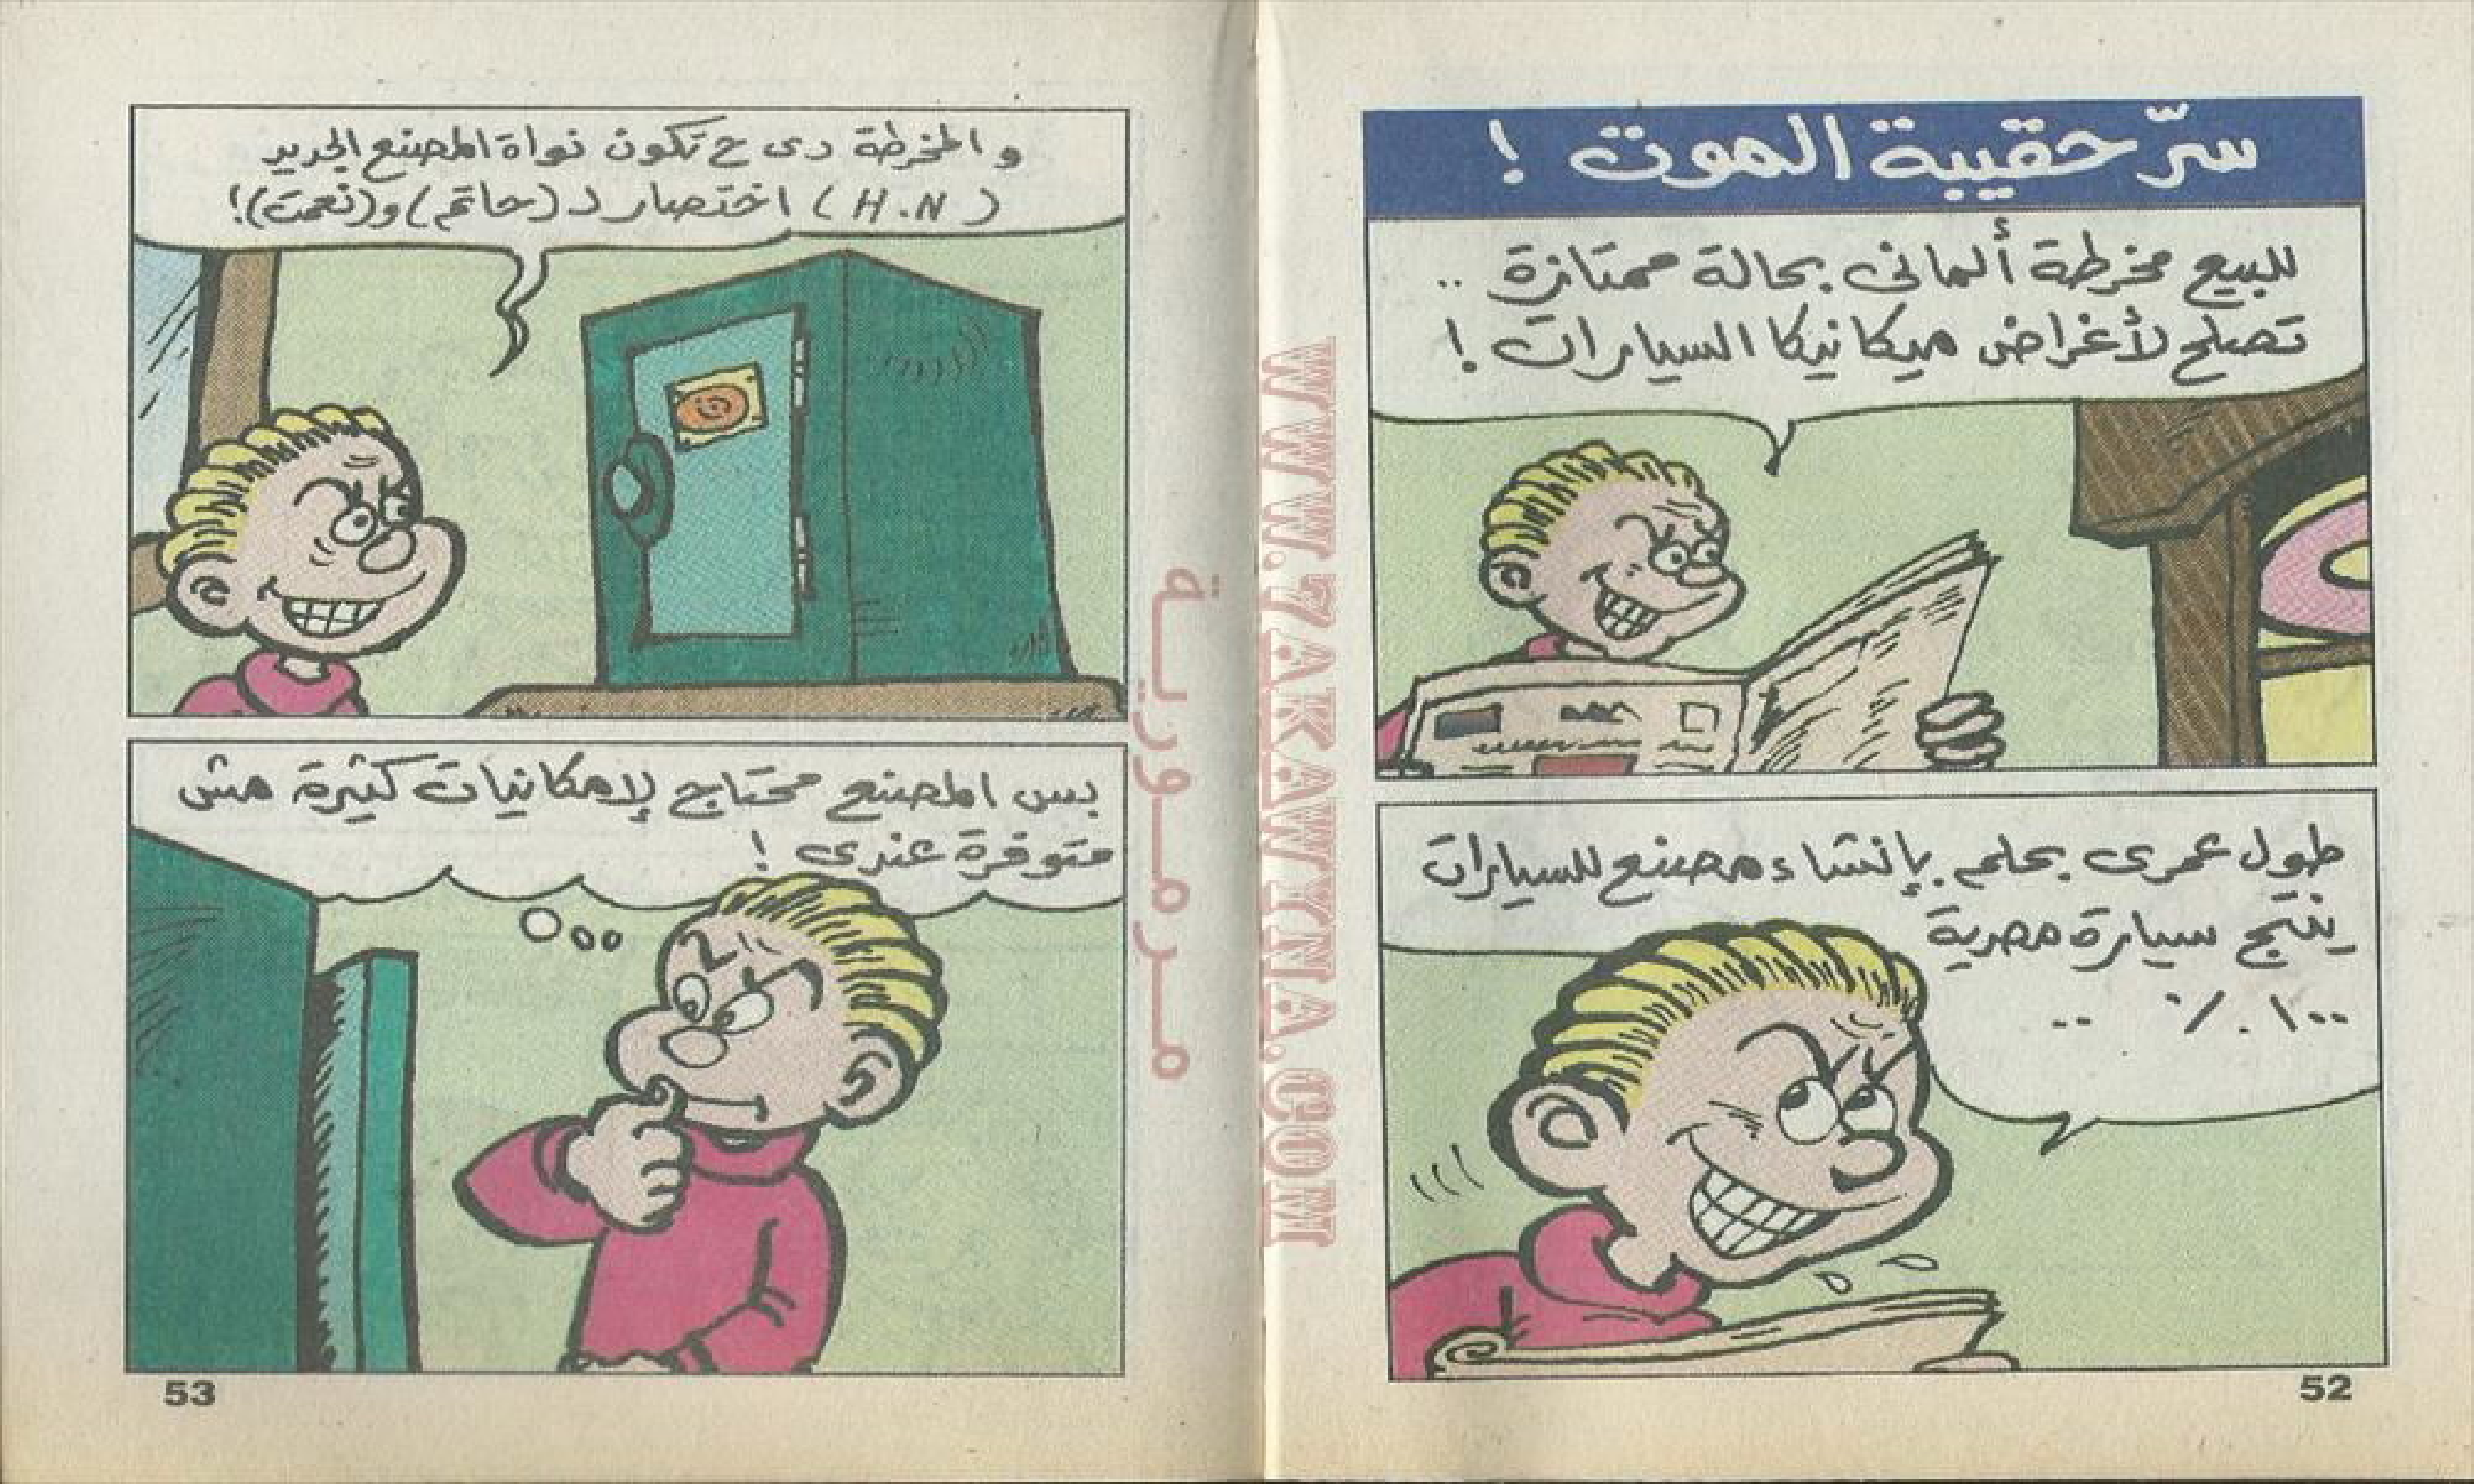 سرّ حقيبة الموت !
للبيع مخرطة ألمانى بحالة ممتازة ..
تصلح لأغراض ميكانيكا السيارات !
طول عمرى بحلم بإنشاء مصنع للسيارات
ينتج سيارة مصرية
١٠٠ ٪ ..
52
و المخرطة دى ح تكون نواة المصنع الجديد
( H.N ) اختصار لـ (حاتم) و(نعمت)!
بس المصنع محتاج لإمكانيات كثيرة مش
متوفرة عندى !
53
مرمورية
WWW.7AKAWYNA.COM